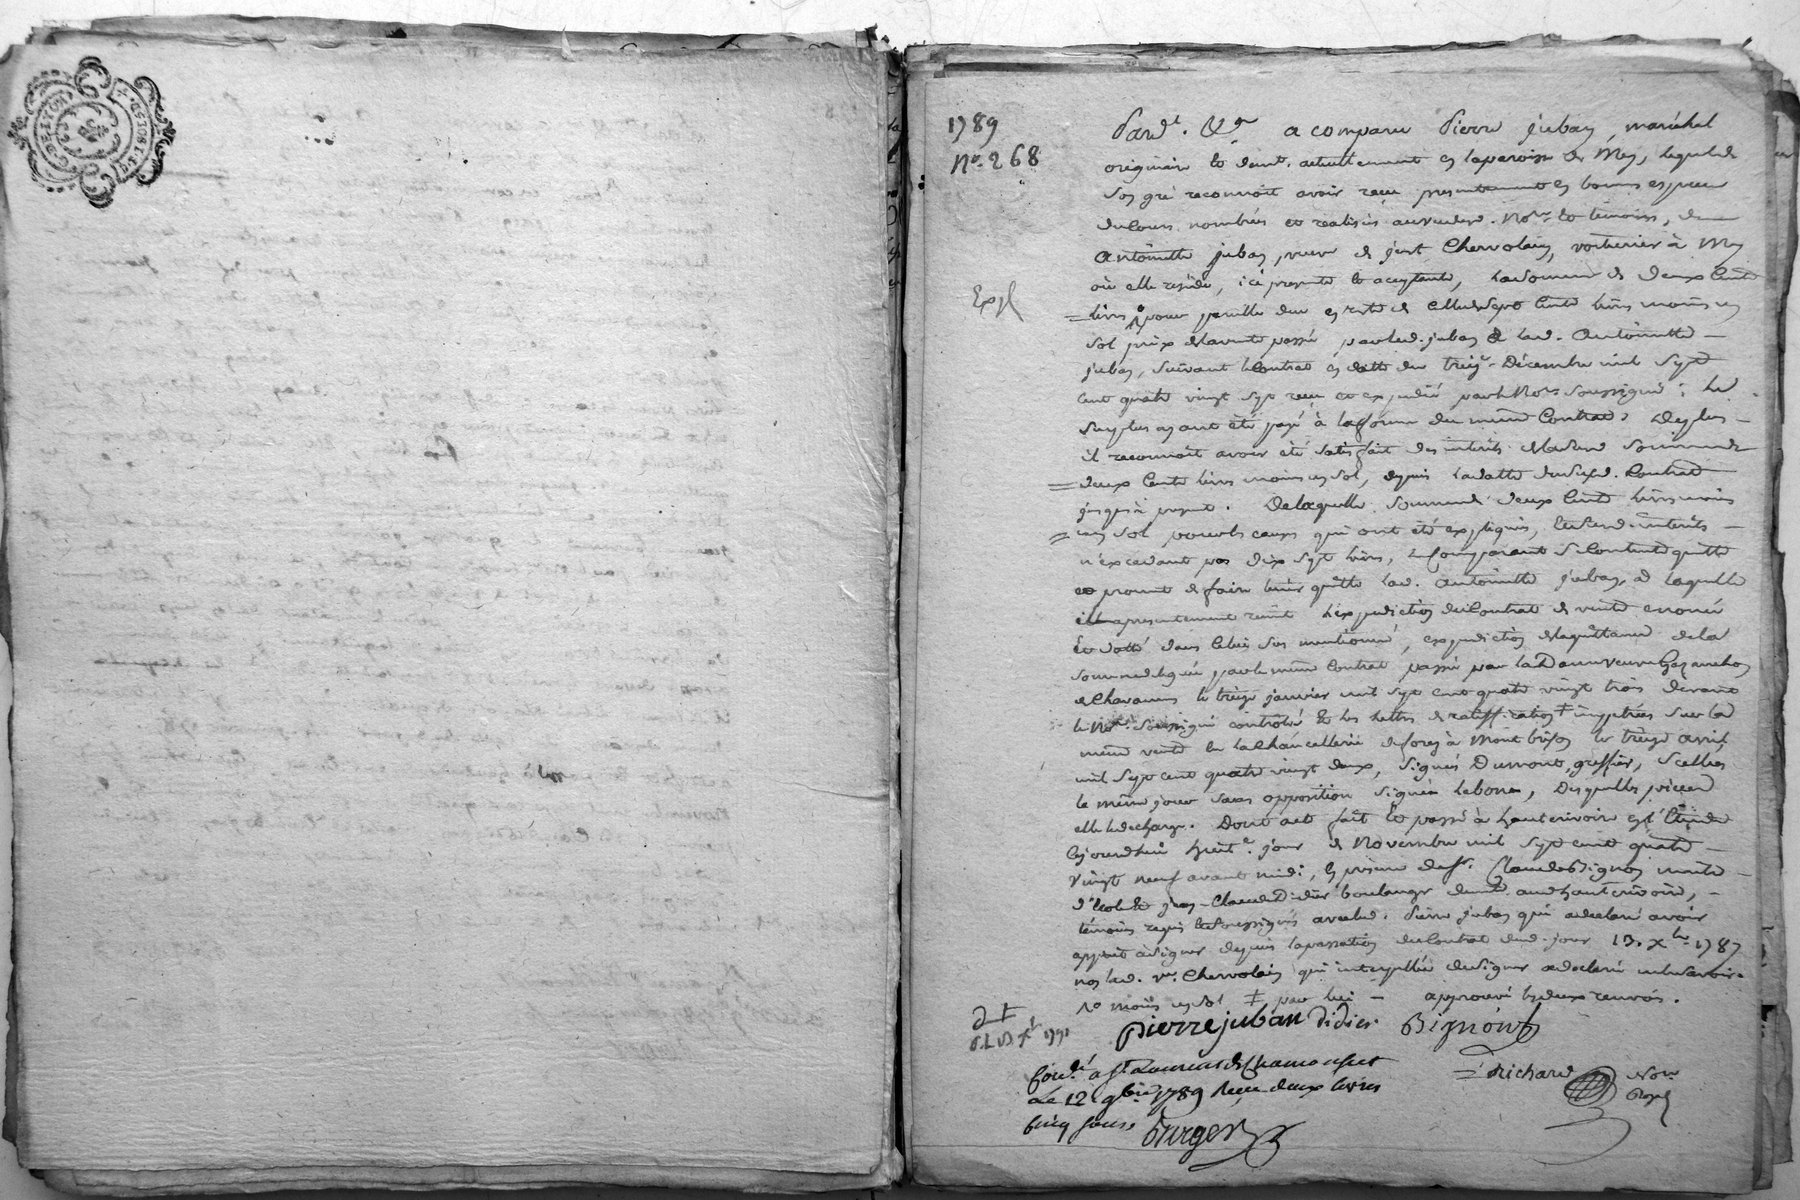 G. DE LYON
2. SOLS 8 D.
1789
N.o 268
Pard.t &.a a comparu Pierre juban, maréchal
originaire et dem.t actuellement en la paroisse de Meys, lequel de
son gré reconnoit avoir reçu presentement en bonnes especes
du cours nombrées et realisées au vu dud. No.re et temoins, de
Antoinette juban, veuve de jean Chervolain, voiturier à Meys
où elle reside, ici presente et aceptante, la somme de deux Cents
livres pour pareille due en reste de celle de sept Cents livres moins un
Expé
sol prix de la vente passée par led. juban à lad. Antoinette
juban, suivant le Contrat en datte du treiz.e Décembre mil sept
cent quatre vingt sept reçu et expedié par le No.re soussigné ; le
surplus ayant été payé à la forme du meme Contrat. De plus
il reconnoit avoir été satisfait des interets de lad. somme de
deux Cents livres moins un sol, depuis la datte du susd. Contrat
jusqu'à present. De laquelle somme de deux Cents livres moins
un sol pour les causes qui ont été expliquées, et lesd. interets
n'excedant pas dix sept livres, le Comparant se Contente quitte
et promet de faire tenir quitte lad. Antoinette juban, à laquelle
il a presentement remit l'expedition du Contrat de vente enoncé
et datté dans celui sus mentionné, expedition de la quittance de la
somme deleguée par le meme Contrat passée par la Dame veuve
de Chavannes le treize janvier mil sept cent quatre vingt trois devant
le No.re soussigné controlé et les Lettres de ratiffication impetrées sur la
meme vente en la Chancellerie de forez à Montbrison le treize avril
mil sept cent quatre vingt deux, signées Dumont, greffier, scellées
le meme jour sans opposition signé, desquelles pieces
elle le decharge. Dont acte fait et passé à hauterivoire en l'Etude
cejourd'hui huit.e jour de Novembre mil sept cent quatre
vingt neuf avant midi, en presence de s.r Claude Bignon maitre
d'Ecole et jean-Claude Didier boulanger dem.t aud. hauterivoire,
témoins requis et soussignés avec led. Pierre juban qui a declaré avoir
appris à signer depuis la passation du Contrat dud. jour 13. X.bre 1787
non lad. v.e Chervolain qui interpellée de signer a declaré ne le savoir.
N.o moins un sol ‡ par lui — approuvé les deux renvois.
pierre juban Didier Bignon
Con.lé a St Laurent de Chamousset
Le 12 9bre 1789 Reçu deux livres
Cinq sous.
Richard No.re
Royal